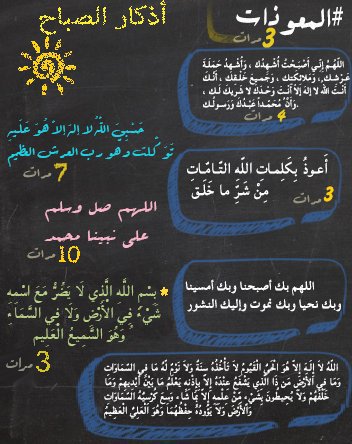 أذكار الصباح
#المعوذات
3 مرات
اللَّهُمَّ إِنِّي أَصْبَحْتُ أُشْهِدُكَ ، وَأُشْهِدُ حَمَلَةَ
عَرْشِكَ ، وَمَلَائِكَتِكَ ، وَجَمِيعَ خَلْقِكَ ، أَنَّكَ
أَنْتَ اللَّهُ لَا إِلَهَ إِلَّا أَنْتَ وَحْدَكَ لَا شَرِيكَ لَكَ ،
وَأَنَّ مُحَمَّداً عَبْدُكَ وَرَسُولُكَ.
4 مرات
حَسْبِيَ اللَّهُ لا إله إلا هُوَ عَلَيهِ
تَوَكَّلتُ وهو رب العرش العظيم
7 مرات
أَعوذُ بِكَلِماتِ اللّهِ التّامّاتِ
مِنْ شَرِّ ما خَلَقَ
3 مرات
اللهم صل وسلم
على نبينا محمد
10 مرات
اللهم بك أصبحنا وبك أمسينا
وبك نحيا وبك نموت وإليك النشور
* بِسْمِ اللَّهِ الَّذِي لَا يَضُرُّ مَعَ اسْمِهِ
شَيْءٌ فِي الْأَرْضِ وَلَا فِي السَّمَاءِ
وَهُوَ السَّمِيعُ الْعَلِيم
3 مرات
اللَّهُ لَا إِلَهَ إِلَّا هُوَ الْحَيُّ الْقَيُّومُ لَا تَأْخُذُهُ سِنَةٌ وَلَا نَوْمٌ لَهُ مَا فِي السَّمَاوَاتِ
وَمَا فِي الْأَرْضِ مَن ذَا الَّذِي يَشْفَعُ عِنْدَهُ إِلَّا بِإِذْنِهِ يَعْلَمُ مَا بَيْنَ أَيْدِيهِمْ وَمَا
خَلْفَهُمْ وَلَا يُحِيطُونَ بِشَيْءٍ مِنْ عِلْمِهِ إِلَّا بِمَا شَاءَ وَسِعَ كُرْسِيُّهُ السَّمَاوَاتِ
وَالْأَرْضَ وَلَا يَؤُودُهُ حِفْظُهُمَا وَهُوَ الْعَلِيُّ الْعَظِيمُ